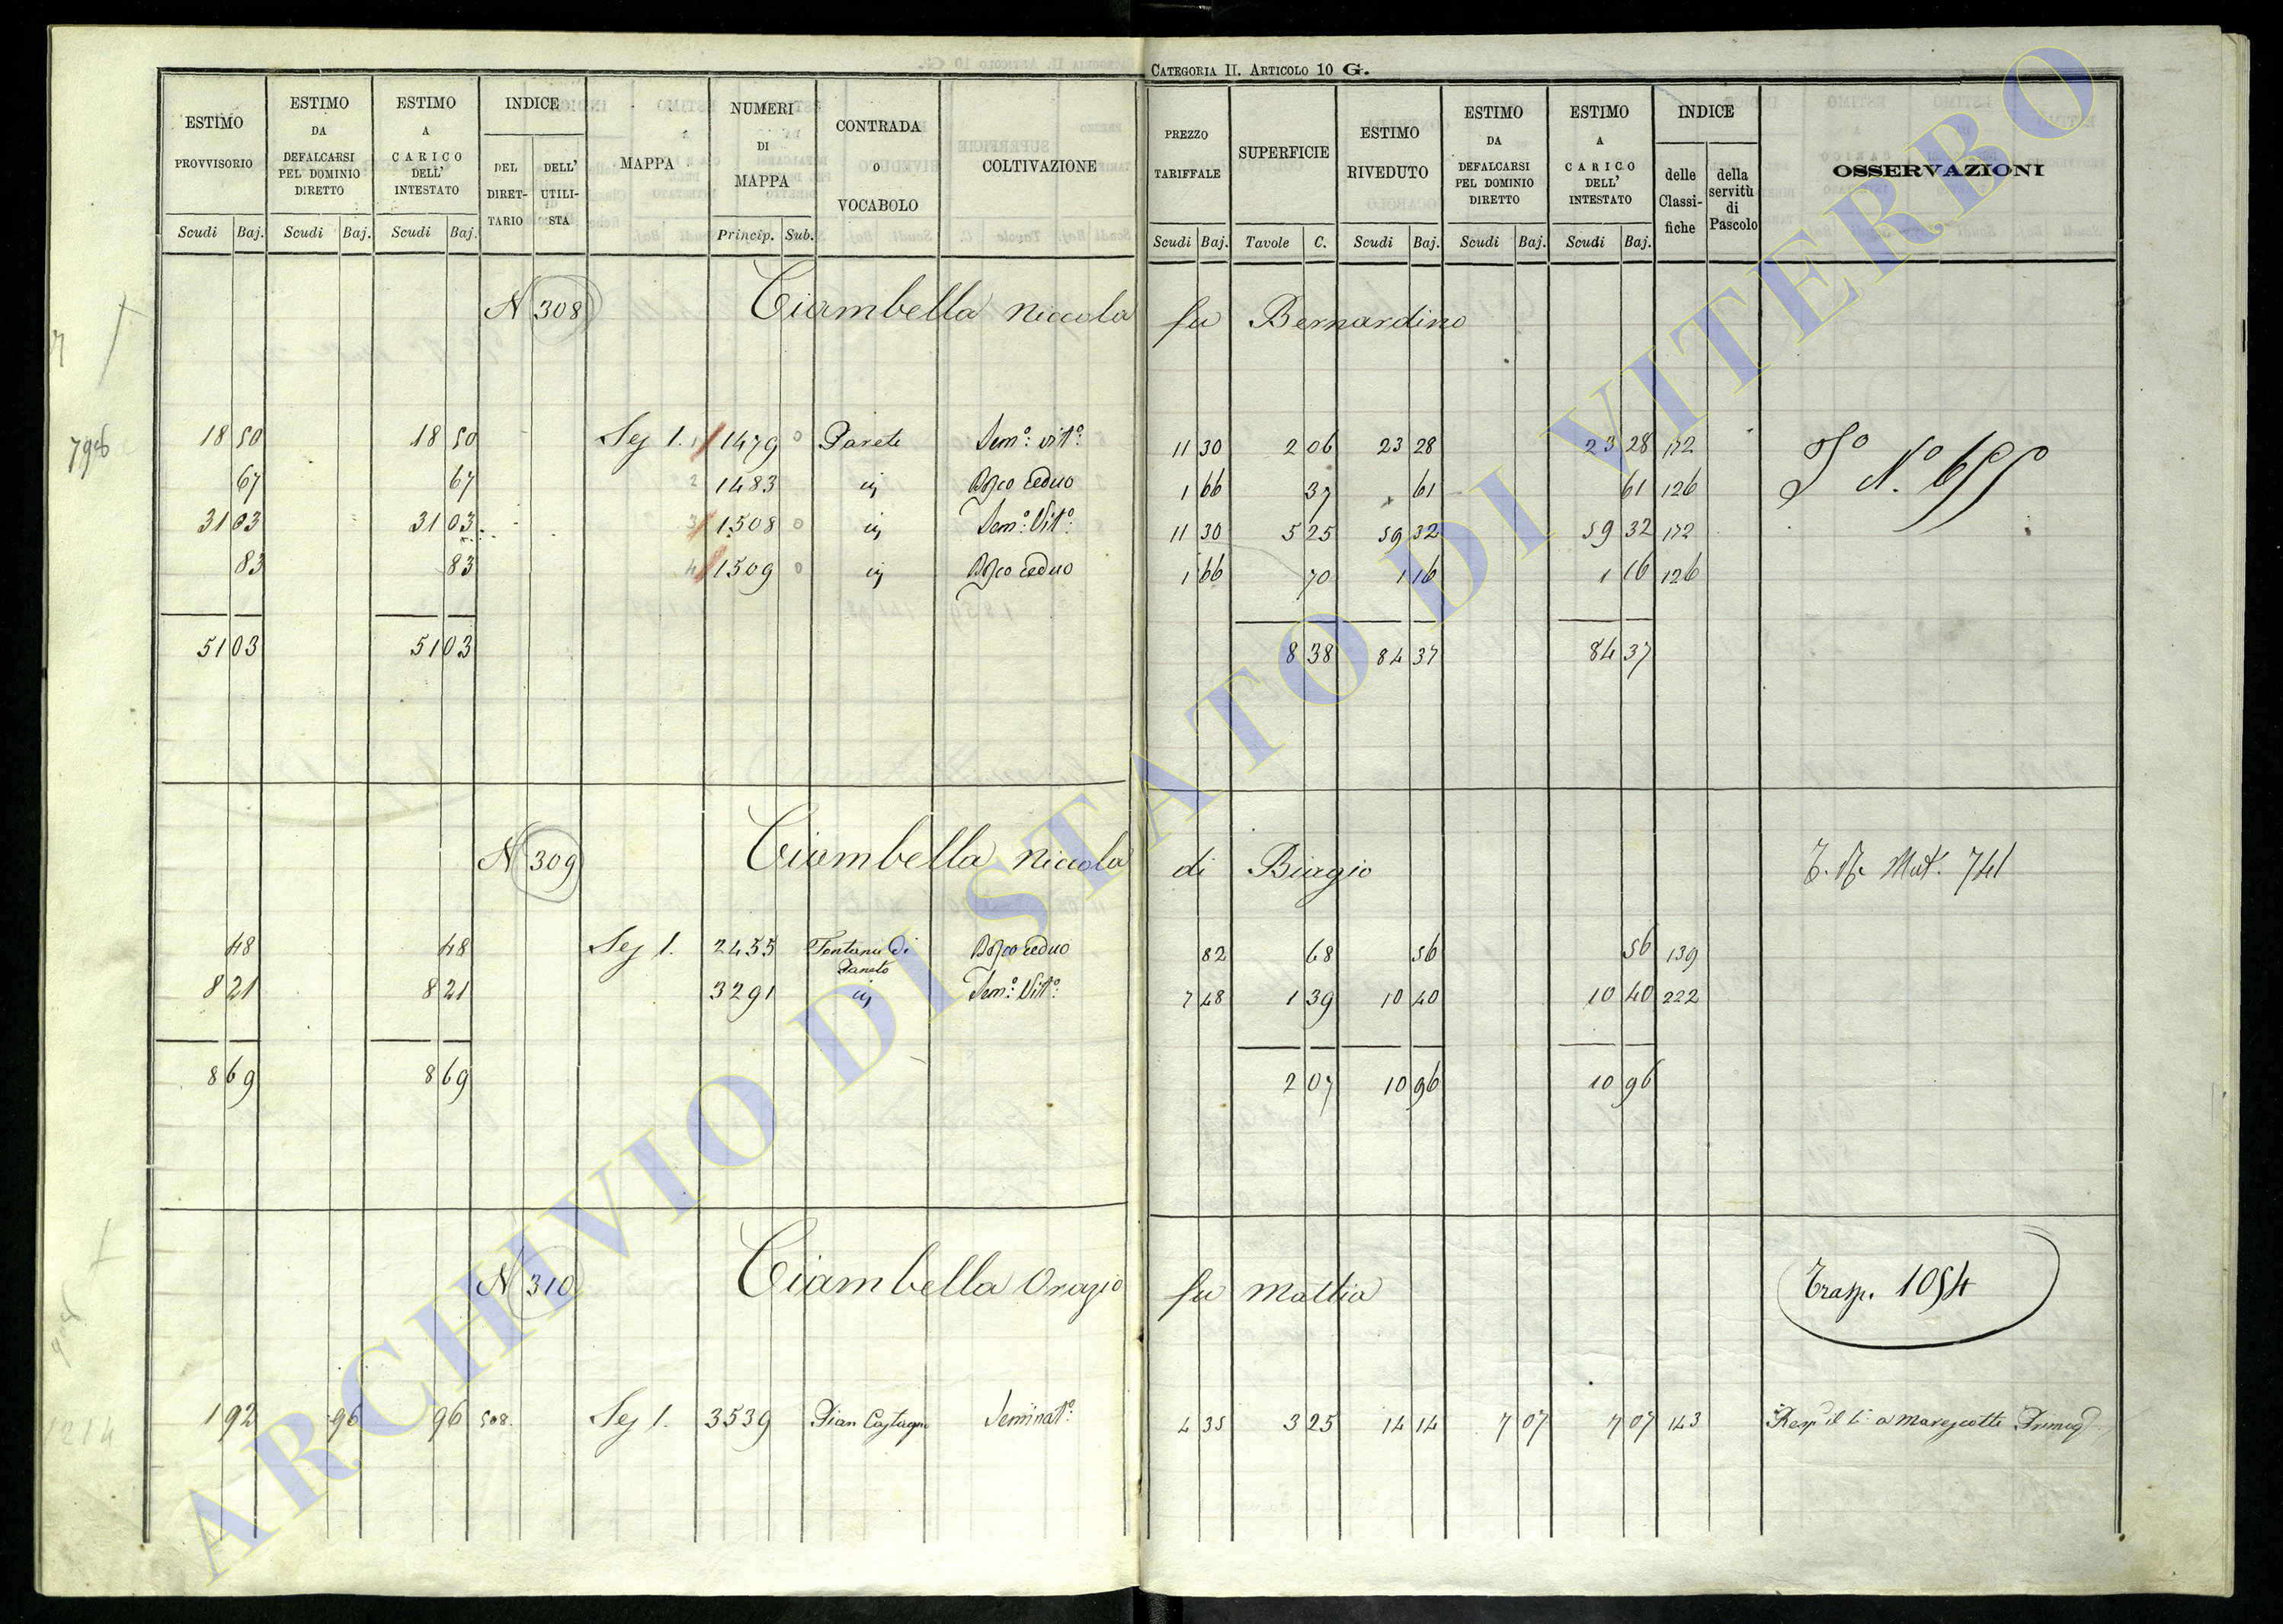 CATEGORIA II. ARTICOLO 10 G.
ESTIMO PROVVISORIO Scudi Baj.
ESTIMO DA DEFALCARSI PEL DOMINIO DIRETTO Scudi Baj.
ESTIMO A CARICO DELL' INTESTATO Scudi Baj.
INDICE DEL DIRETTARIO DELL' UTILISTA
MAPPA
NUMERI DI MAPPA Princip. Sub.
CONTRADA o VOCABOLO
COLTIVAZIONE
PREZZO TARIFFALE Scudi Baj.
SUPERFICIE Tavole C.
ESTIMO RIVEDUTO Scudi Baj.
ESTIMO DA DEFALCARSI PEL DOMINIO DIRETTO Scudi Baj.
ESTIMO A CARICO DELL' INTESTATO Scudi Baj.
INDICE delle Classifiche della servitù di Pascolo
OSSERVAZIONI
N 308 Ciambella Niccola fu Bernardino
18 50 18 50 Sez 1. 1 1479 0 Parete Sem.º vit.º 11 30 2 06 23 28 23 28 172
67 67 2 1483 id Bosco ceduo 1 66 37 61 61 126
31 03 31 03 3 1508 0 id Sem.º Vit.º 11 30 5 25 59 32 59 32 172
83 83 4 1509 0 id Bosco ceduo 1 66 70 1 16 1 16 126
51 03 51 03 8 38 84 37 84 37
Nº 655
N 309 Ciambella Niccola di Biagio
Mat. 741
48 48 Sez 1. 2455 Fontana di Bosco ceduo 82 68 56 56 139
8 21 8 21 3291 id Sem.º Vit.º 7 48 1 39 10 40 10 40 222
8 69 8 69 2 07 10 96 10 96
N 310 Ciambella Orazio fu Mattia
Trasp. 1054
1 92 96 96 508. Sez 1. 3539 Pian Castagno Seminat.º 4 35 3 25 14 14 7 07 7 07 143 a Marescotti
1214
ARCHIVIO DI STATO DI VITERBO